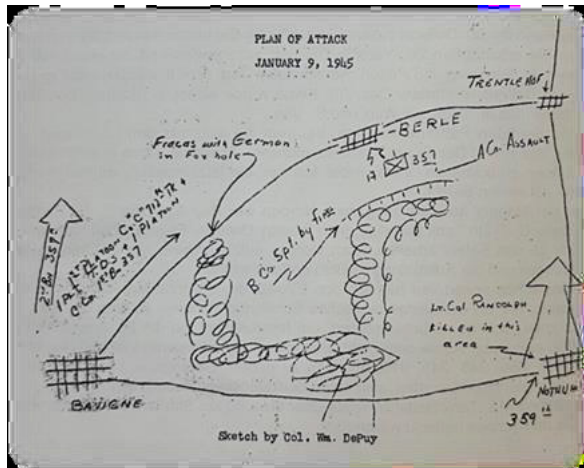 PLAN OF ATTACK
JANUARY 9, 1945
TRENTLEHOF
Fracas with German
in Fox hole
BERLE
357
A Co. ASSAULT
2nd Bn 359th
1st PLATOON Co "C" 712th TK +
PLATOON
C Co. 1st Bn 357
B Co. Split by fire
Lt. Col. RANDOLPH
Killed in this
area
BAVIGNE
NOTHUM
359th
Sketch by Col. Wm. DePuy